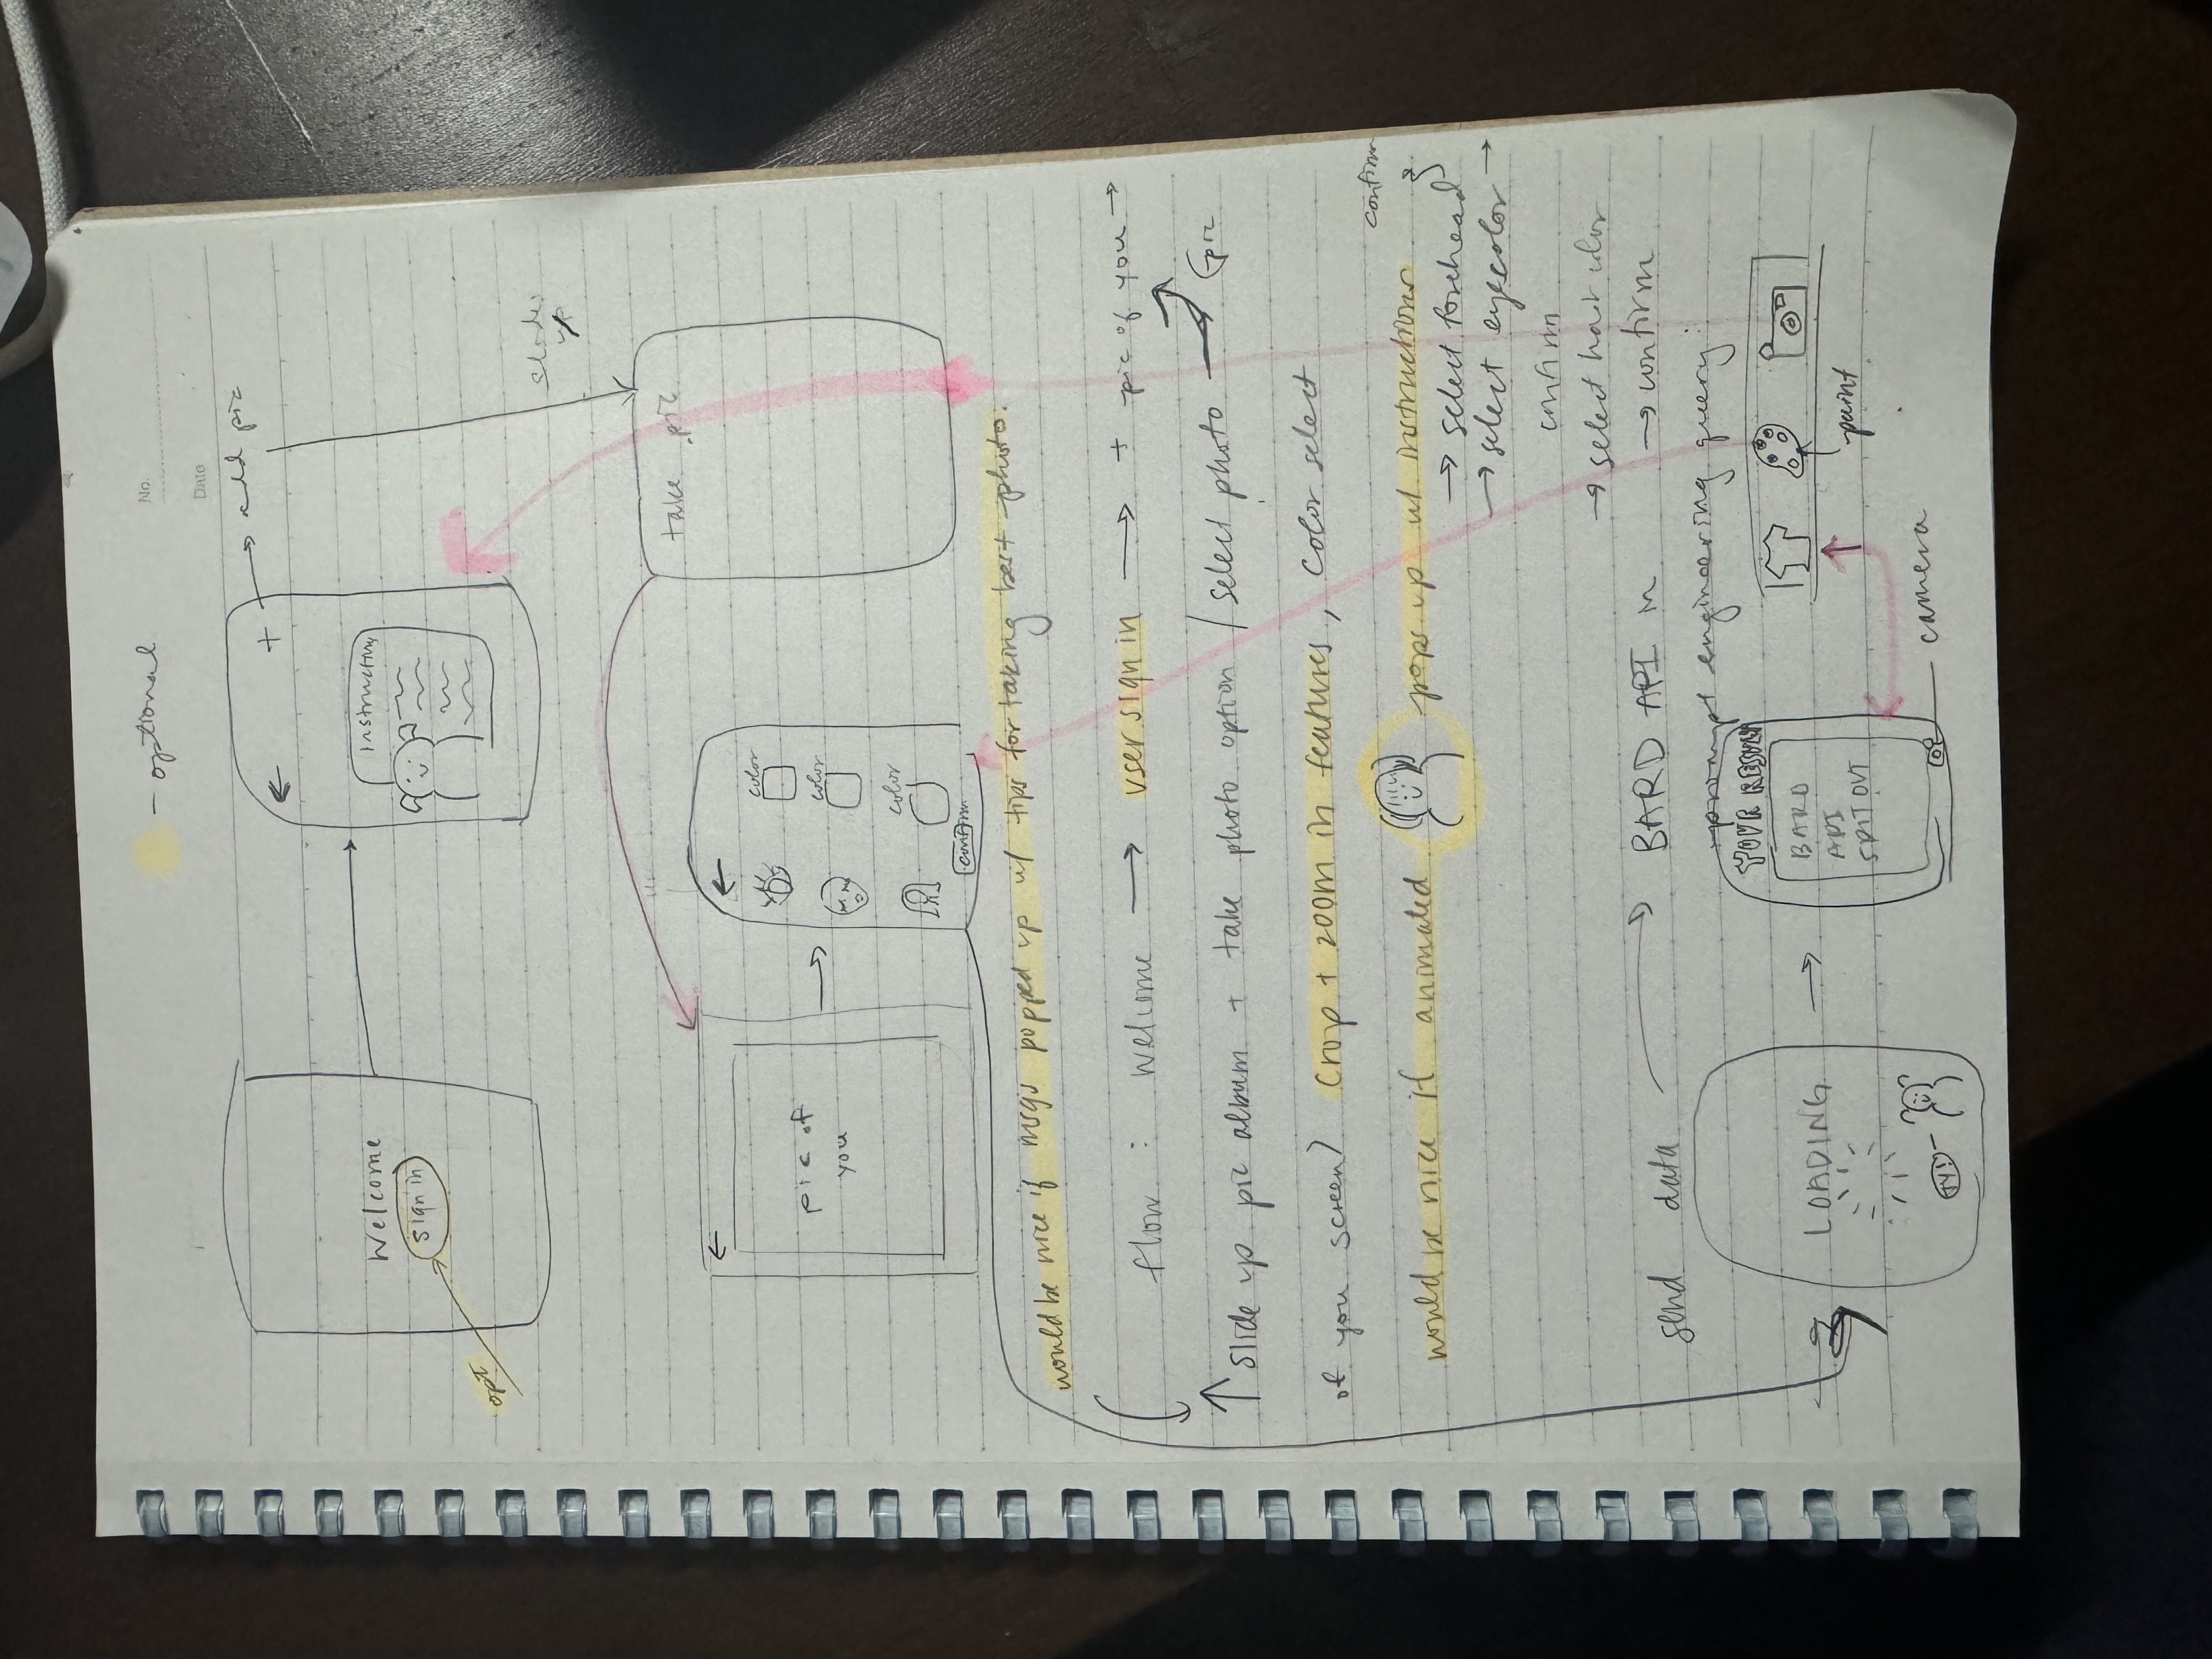 - optional
No.
Date
Welcome
sign in
opt
← +
→ add pic
instructions
slides up
take pic
←
pic of
you
←
color
color
color
confirm
would be nice if msgs popped up w/ tips for taking best photo.
flow : Welcome → user sign in → + pic of you →
↑ slide up pic album + take photo option / select photo → (pic
of you screen) crop + zoom in features, color select
would be nice if animated pops up w/ instructions
confirm
→ select forehead
→ select eyecolor →
confirm
→ select hair color
→ confirm
send data → BARD API in
prompt engineering query:
LOADING
TY!
YOUR RESULT
BARD
API
SPIT OUT
paint
camera